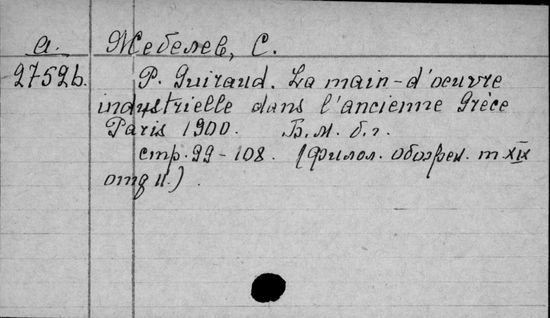 a. Жебелев, С.
27526. P. Guiraud. La main-d'oeuvre
industrielle dans l'ancienne Grèce
Paris 1900. Б.м. б.г.
стр. 99-108. (Филол. обозрен. т XIX
отд II.)